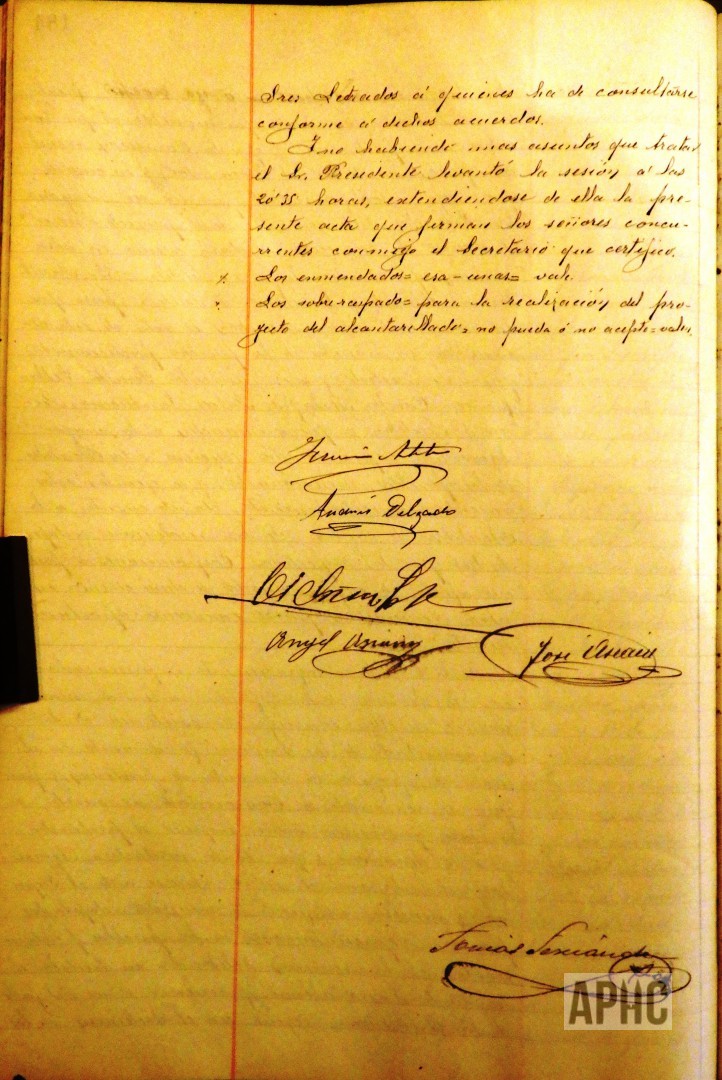 tres Letrados á quienes ha de consultarse
conforme á dichos acuerdos.
Y no habiendo mas asuntos que tratar
el Sr. Presidente levantó la sesión á las
20'35 horas, extendiendose de ella la pre-
sente acta que firman los señores concu-
rrentes conmigo el Secretario que certifico.
Los enmendados= esa-unas= vale
Los sobre-raspado= para la realización del pro-
yecto del alcantarillado= no pueda ó no acepte=valen.
Andrés Delgado
Angel
José
Tomás Fernández
APHC